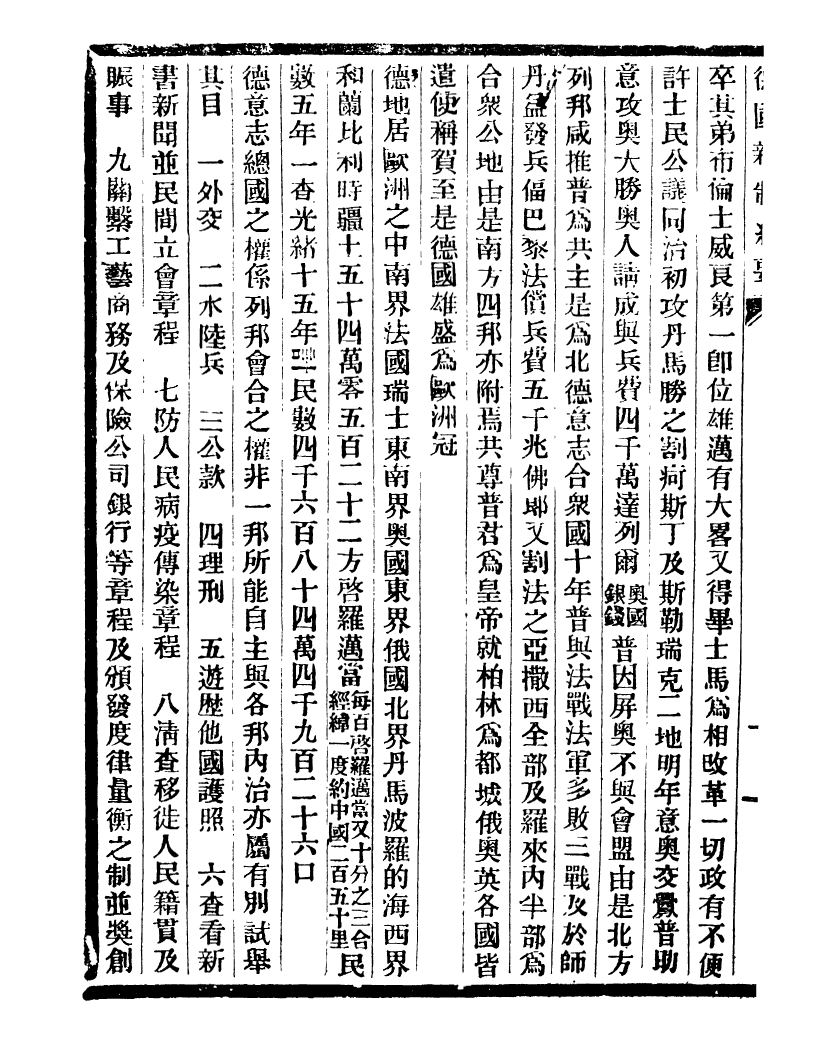 德國新制紀要
卒其弟布倫士威良第一卽位雄邁有大畧又得畢士馬爲相改革一切政有不便
許士民公議同治初攻丹馬勝之割疴斯丁及斯勒瑞克二地明年意奧交釁普助
意攻奧大勝奧人請成與兵費四千萬達列爾奧國銀錢普因屏奧不與會盟由是北方
列邦咸推普爲共主是爲北德意志合衆國十年普與法戰法軍多敗三戰及於師
丹益發兵偪巴黎法償兵費五千兆佛郎又割法之亞撒西全部及羅來內半部爲
合衆公地由是南方四邦亦附焉共尊普君爲皇帝就柏林爲都城俄奧英各國皆
遣使稱賀至是德國雄盛爲歐洲冠
德地居歐洲之中南界法國瑞士東南界奧國東界俄國北界丹馬波羅的海西界
和蘭比利時疆土五十四萬零五百二十二方啓羅邁當每百啓羅邁當又十分之三合經緯一度約中國二百五十里民
數五年一查光緒十五年 民數四千六百八十四萬四千九百二十六口
德意志總國之權係列邦會合之權非一邦所能自主與各邦內治亦屬有別試舉
其目　一外交　二水陸兵　三公款　四理刑　五遊歷他國護照　六查看新
書新聞並民間立會章程　七防人民病疫傳染章程　八淸查移徙人民籍貫及
賑事　九關繫工藝商務及保險公司銀行等章程及頒發度律量衡之制並獎創